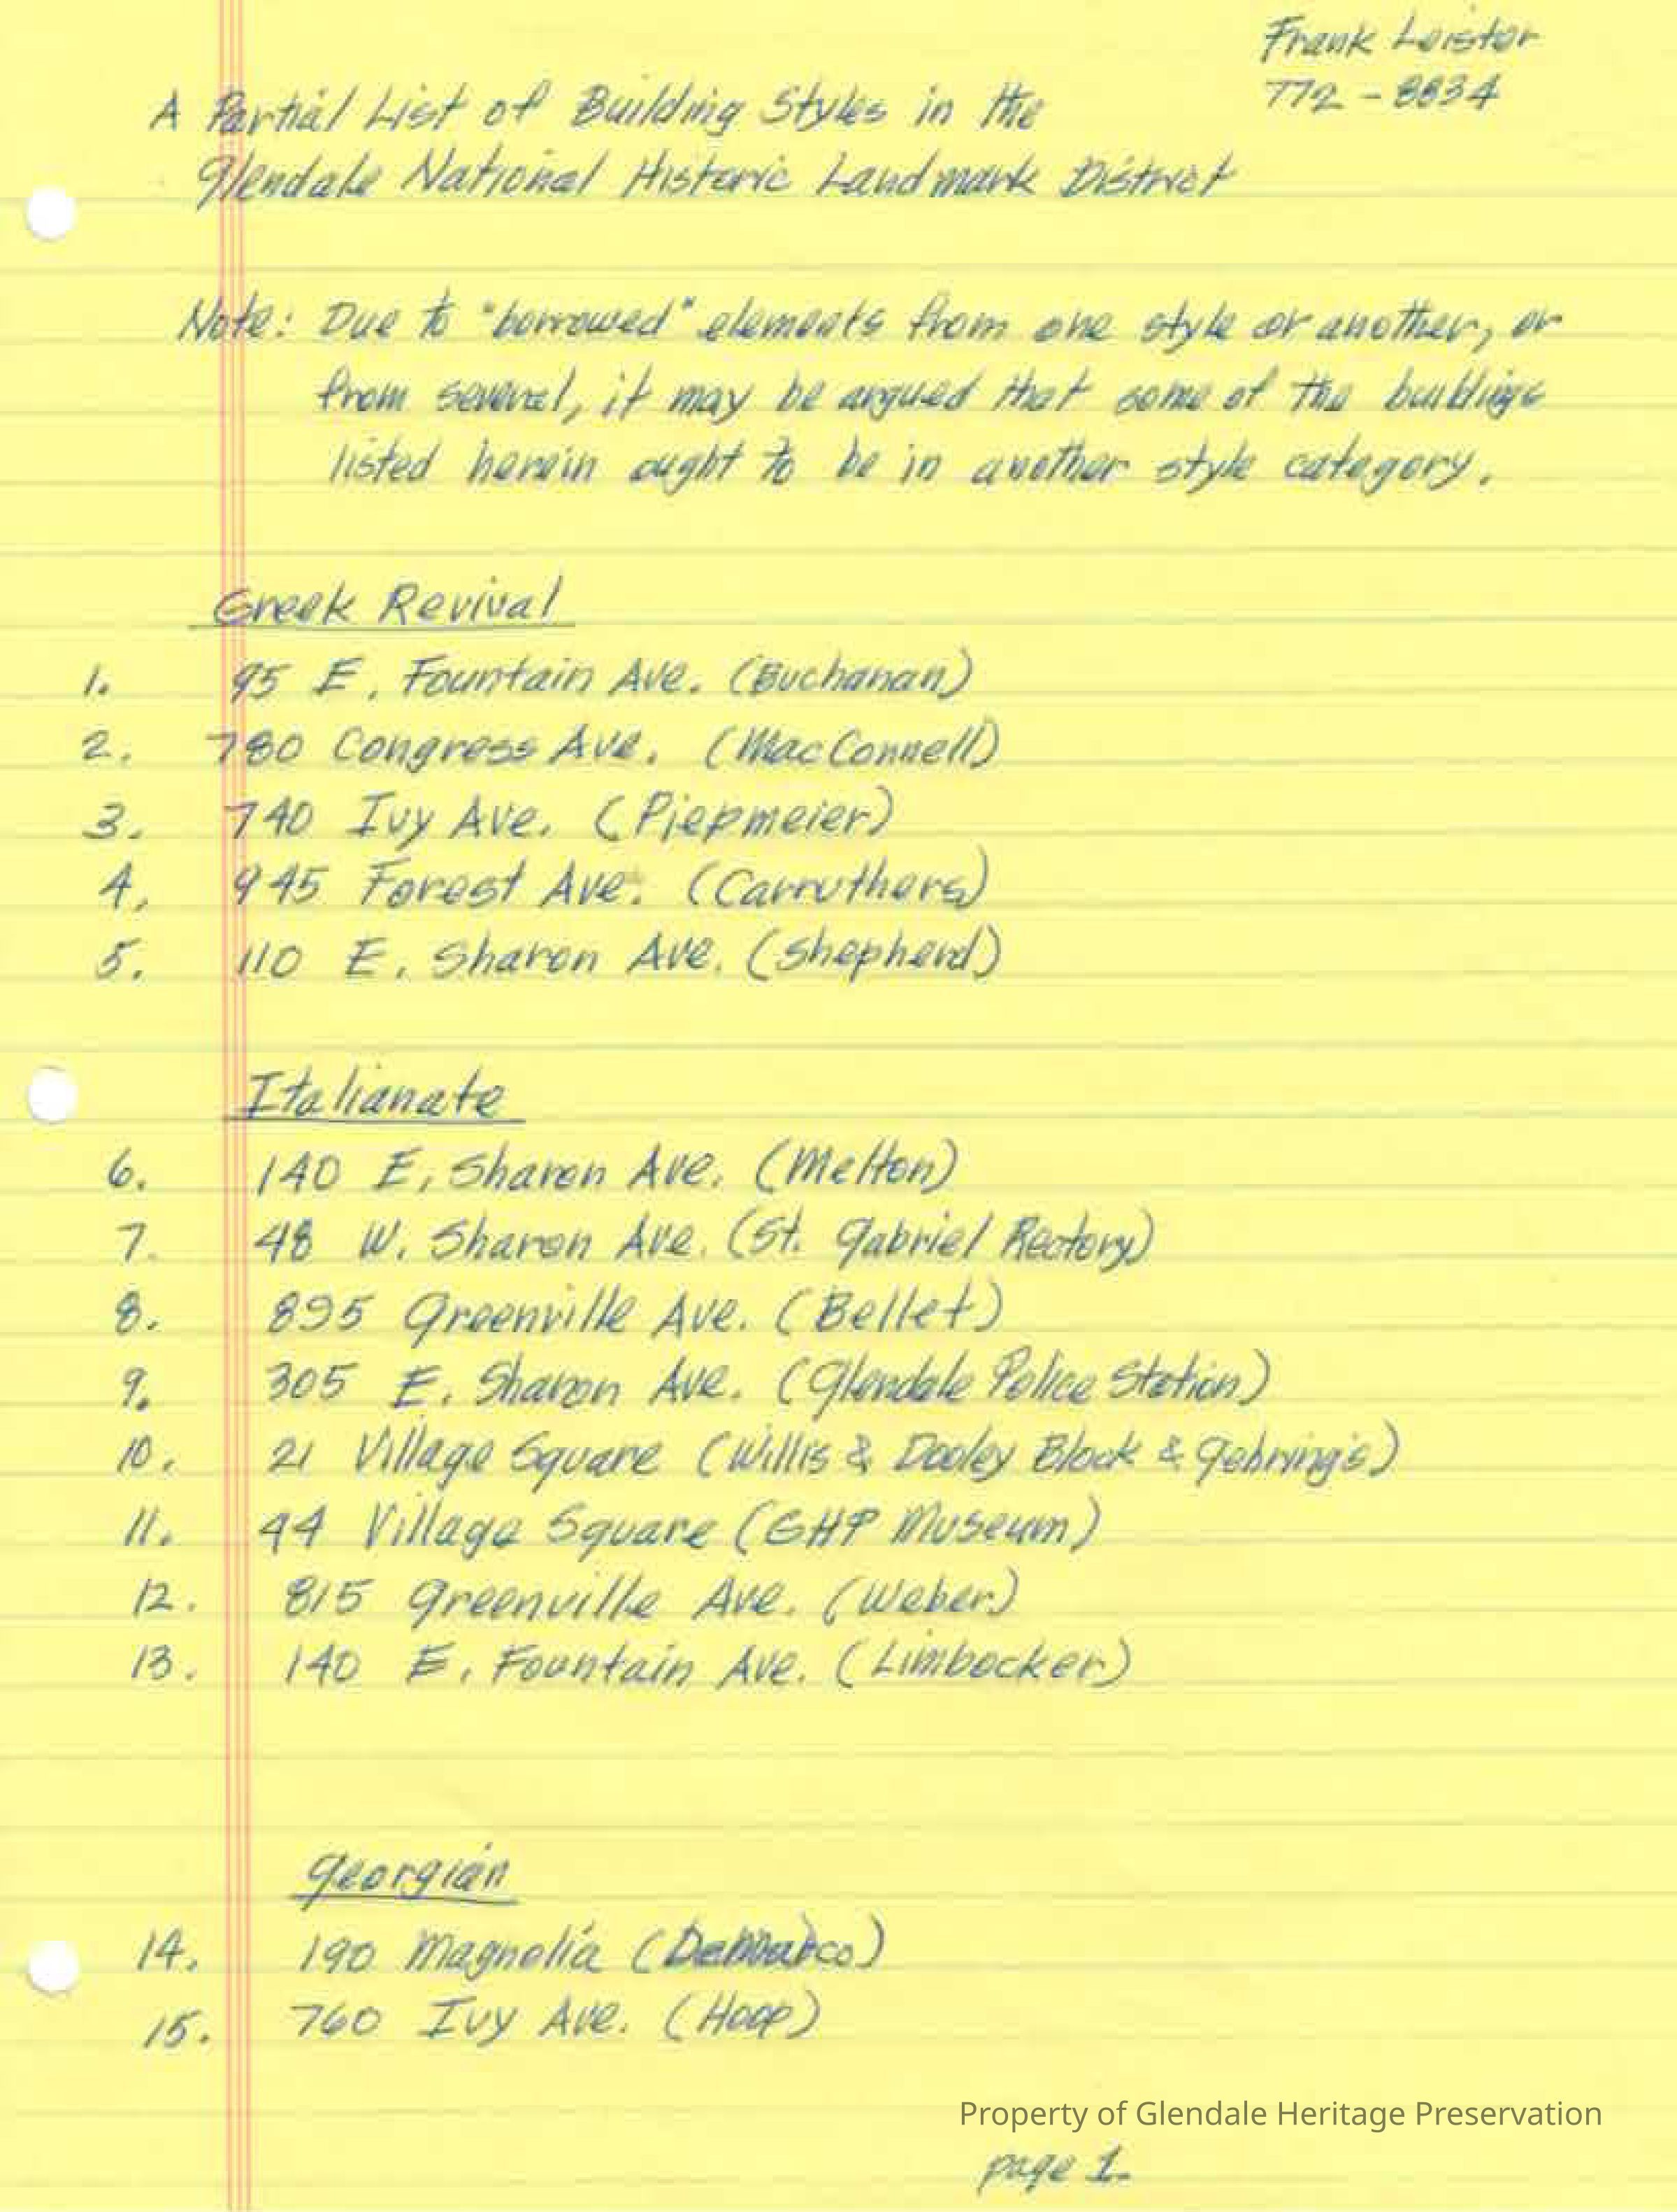 Frank Leister
772-8834
A Partial List of Building Styles in the
Glendale National Historic Landmark District
Note: Due to "borrowed" elements from one style or another, or
from several, it may be argued that some of the buildings
listed herein ought to be in another style category.
Greek Revival
1. 95 E. Fountain Ave. (Buchanan)
2. 780 Congress Ave. (MacConnell)
3. 740 Ivy Ave. (Piepmeier)
4. 945 Forest Ave. (Carruthers)
5. 110 E. Sharon Ave. (Shepherd)
Italianate
6. 140 E. Sharon Ave. (Melton)
7. 48 W. Sharon Ave. (St. Gabriel Rectory)
8. 895 Greenville Ave. (Bellet)
9. 305 E. Sharon Ave. (Glendale Police Station)
10. 21 Village Square (Willis & Dooley Block & Gehring's)
11. 44 Village Square (GHP Museum)
12. 815 Greenville Ave. (Weber)
13. 140 E. Fountain Ave. (Limbocker)
Georgian
14. 190 Magnolia (DeMarco)
15. 760 Ivy Ave. (Hoop)
Property of Glendale Heritage Preservation
page 1.